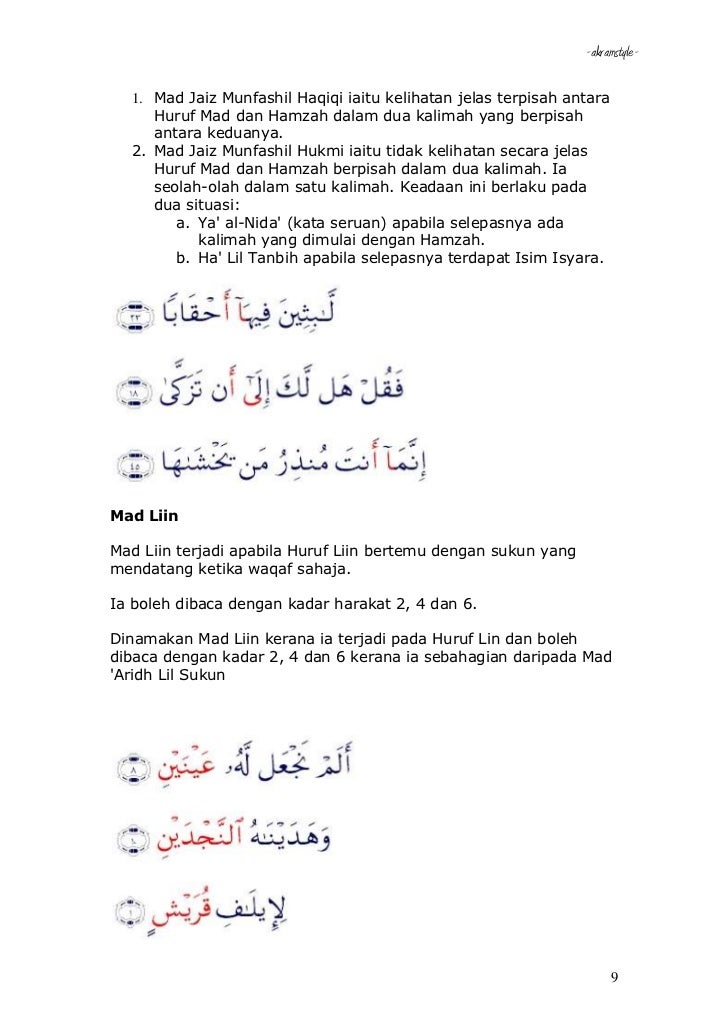 -akramstyle-
1. Mad Jaiz Munfashil Haqiqi iaitu kelihatan jelas terpisah antara
Huruf Mad dan Hamzah dalam dua kalimah yang berpisah
antara keduanya.
2. Mad Jaiz Munfashil Hukmi iaitu tidak kelihatan secara jelas
Huruf Mad dan Hamzah berpisah dalam dua kalimah. Ia
seolah-olah dalam satu kalimah. Keadaan ini berlaku pada
dua situasi:
a. Ya' al-Nida' (kata seruan) apabila selepasnya ada
kalimah yang dimulai dengan Hamzah.
b. Ha' Lil Tanbih apabila selepasnya terdapat Isim Isyara.
لَّـٰبِثِينَ فِيهَآ أَحْقَابًا ٢٣
فَقُلْ هَل لَّكَ إِلَىٰٓ أَن تَزَكَّىٰ ١٨
إِنَّمَآ أَنتَ مُنذِرُ مَن يَخْشَـٰهَا ٤٥
Mad Liin
Mad Liin terjadi apabila Huruf Liin bertemu dengan sukun yang
mendatang ketika waqaf sahaja.
Ia boleh dibaca dengan kadar harakat 2, 4 dan 6.
Dinamakan Mad Liin kerana ia terjadi pada Huruf Lin dan boleh
dibaca dengan kadar 2, 4 dan 6 kerana ia sebahagian daripada Mad
'Aridh Lil Sukun
أَلَمْ نَجْعَل لَّهُۥ عَيْنَيْنِ ٨
وَهَدَيْنَـٰهُ ٱلنَّجْدَيْنِ ١٠
لِإِيلَـٰفِ قُرَيْشٍ ١
9